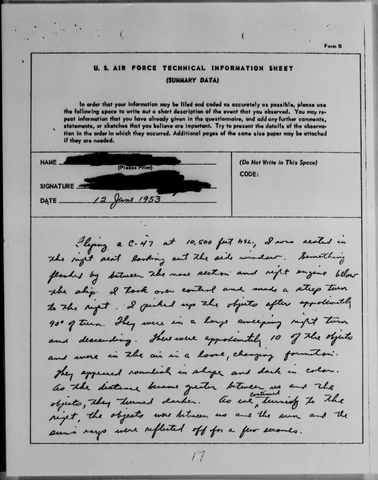 Form B
U. S. AIR FORCE TECHNICAL INFORMATION SHEET
(SUMMARY DATA)
In order that your information may be filed and coded as accurately as possible, please use
the following space to write out a short description of the event that you observed. You may re-
peat information that you have already given in the questionnaire, and add any further comments,
statements, or sketches that you believe are important. Try to present the details of the observa-
tion in the order in which they occurred. Additional pages of the same size paper may be attached
if they are needed.
NAME
(Please Print)
SIGNATURE
DATE 12 June 1953
(Do Not Write in This Space)
CODE:
Flying a C-47 at 10,500 feet MSL, I was seated in
the right seat looking out the side window. Something
flashed by between the nose section and right engine below
the ship. I took over control and made a steep turn
to the right. I picked up the objects after
90° of turn. They were in a large sweeping right turn
and descending. There were 10 of the objects
and were in the air in a loose, changing formation.
They appeared roundish in shape and dark in color.
As the distance became greater between us and the
objects, they turned darker. As we continued turning to the
right, the objects were between us and the sun and the
sun's rays were reflected off for a few seconds.
17